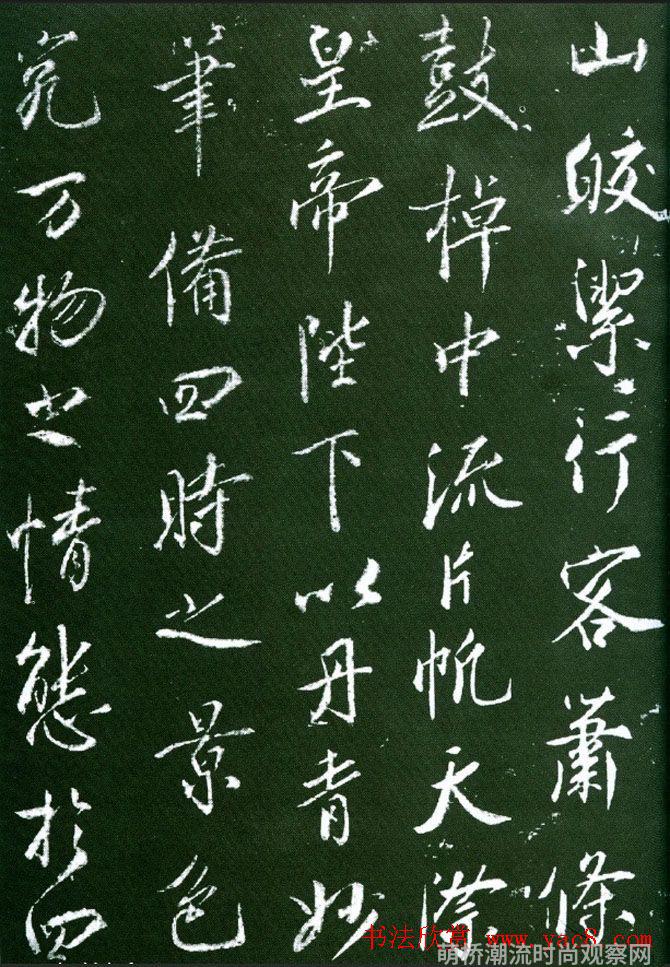 山皎潔行客蕭條
鼓棹中流片帆天際
皇帝陛下以丹青妙
筆備四時之景色
究万物之情態於四
书法欣赏 www.yac8.com
萌桥潮流时尚观察网